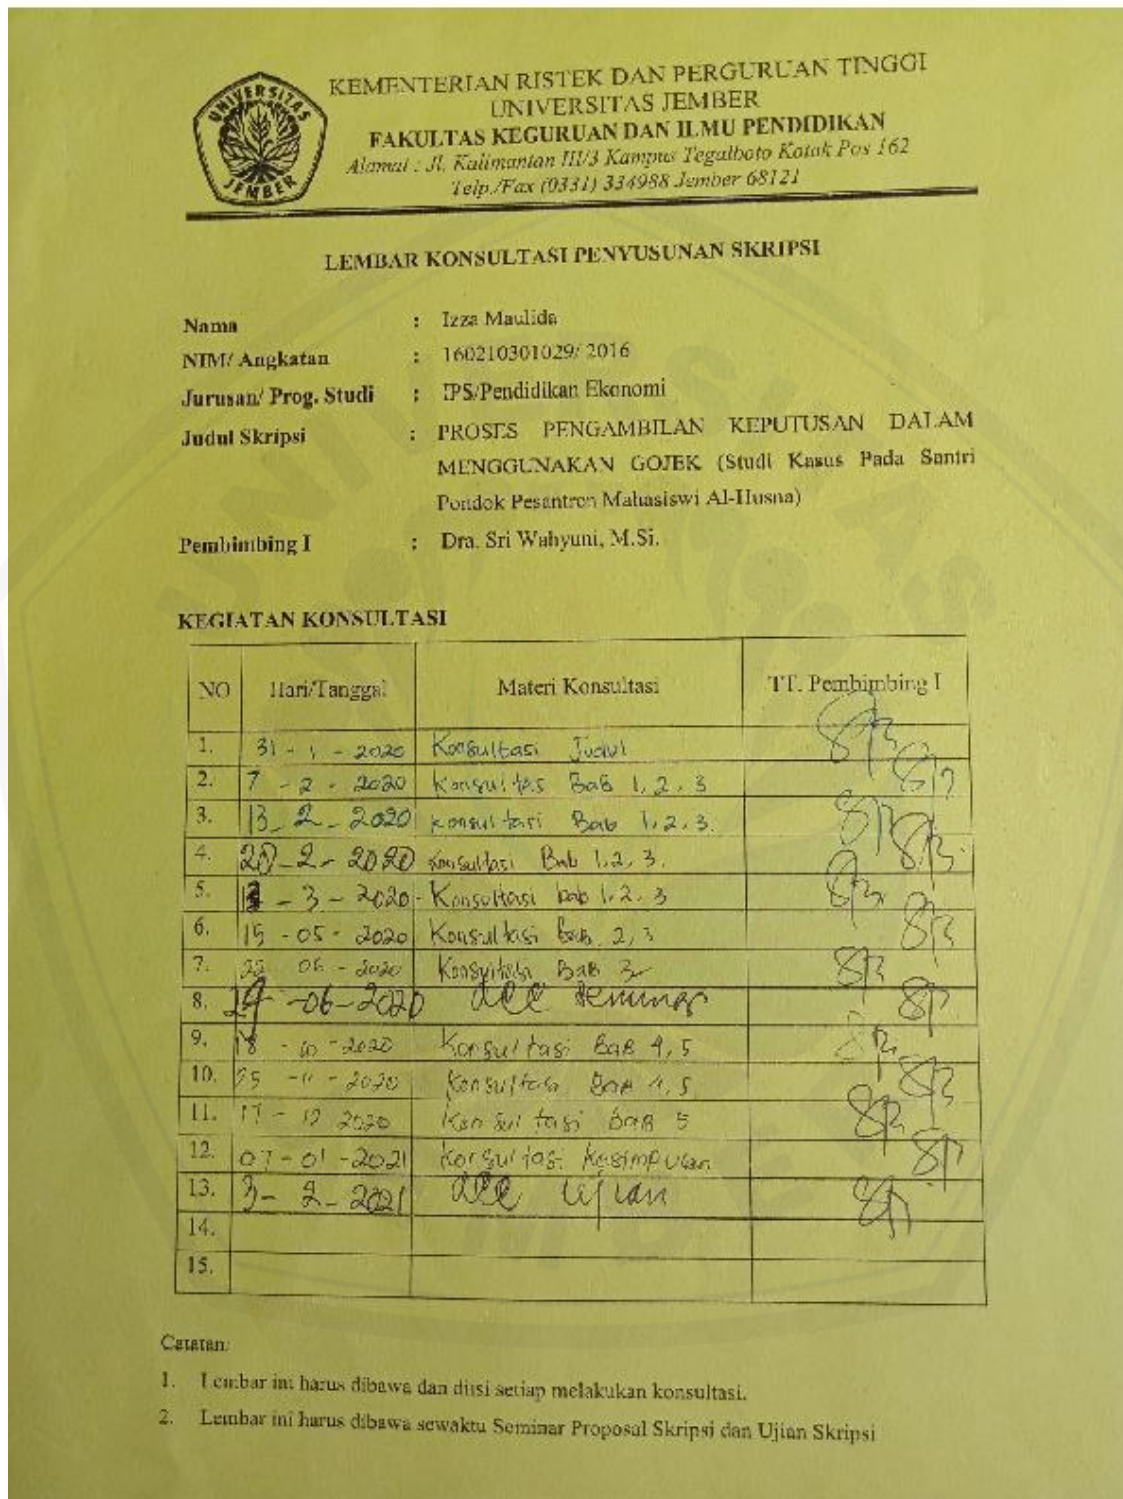 UNIVERSITAS
JEMBER
KEMENTERIAN RISTEK DAN PERGURUAN TINGGI
UNIVERSITAS JEMBER
FAKULTAS KEGURUAN DAN ILMU PENDIDIKAN
Alamat : Jl. Kalimantan III/3 Kampus Tegalboto Kotak Pos 162
Telp./Fax (0331) 334988 Jember 68121
LEMBAR KONSULTASI PENYUSUNAN SKRIPSI
Nama : Izza Maulida
NIM/ Angkatan : 160210301029/ 2016
Jurusan/ Prog. Studi : IPS/Pendidikan Ekonomi
Judul Skripsi : PROSES PENGAMBILAN KEPUTUSAN DALAM
MENGGUNAKAN GOJEK (Studi Kasus Pada Santri
Pondok Pesantren Mahasiswi Al-Husna)
Pembimbing I : Dra. Sri Wahyuni, M.Si.
KEGIATAN KONSULTASI
NO Hari/Tanggal Materi Konsultasi TT. Pembimbing I
1. 31 - 1 - 2020 Konsultasi Judul
2. 7 - 2 - 2020 Konsultas Bab 1, 2, 3
3. 13 - 2 - 2020 Konsultasi Bab 1, 2, 3.
4. 20 - 2 - 2020 Konsultasi Bab 1, 2, 3.
5. - 3 - 2020 Konsultasi bab 1, 2, 3
6. 15 - 05 - 2020 Konsultasi Bab 2, 3
7. - 2020 Konsultasi Bab 3
8. -06-2020 acc
9. 18 - - 2020 Konsultasi Bab 4, 5
10. 25 - 11 - 2020 Konsultasi Bab 4, 5
11. 17 - 12 2020 Konsultasi bab 5
12. 07 - 01 - 2021 Konsultasi Kesimpulan
13. 3 - 2 - 2021 acc ujian
14.
15.
Catatan:
1. Lembar ini harus dibawa dan diisi setiap melakukan konsultasi.
2. Lembar ini harus dibawa sewaktu Seminar Proposal Skripsi dan Ujian Skripsi